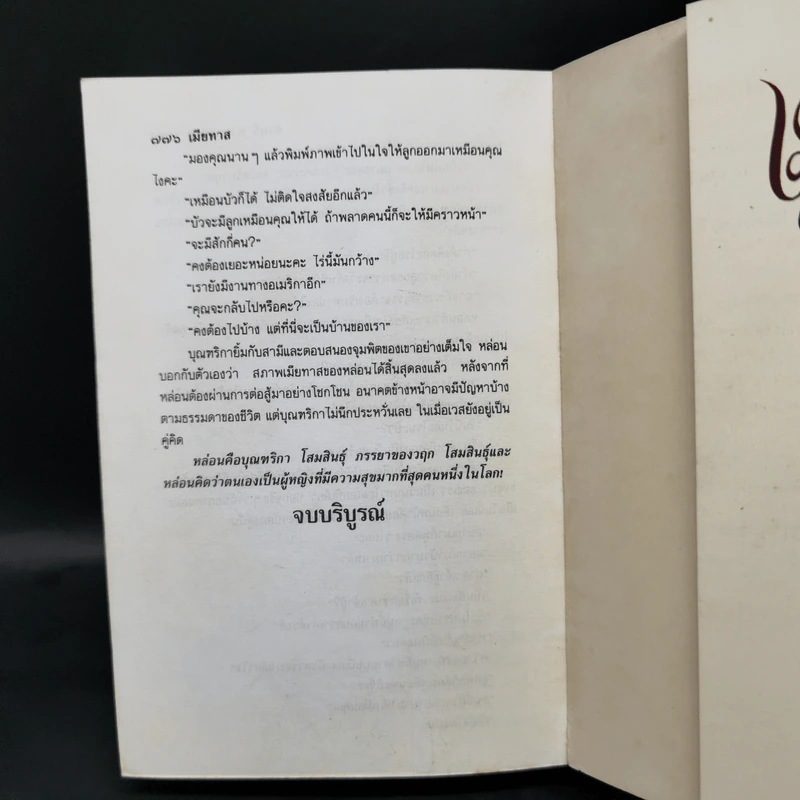 ๗๗๖ เมียทาส
"มองคุณนาน ๆ แล้วพิมพ์ภาพเข้าไปในใจให้ลูกออกมาเหมือนคุณ
ไงคะ"
"เหมือนบัวก็ได้ ไม่ติดใจสงสัยอีกแล้ว"
"บัวจะมีลูกเหมือนคุณให้ได้ ถ้าพลาดคนนี้ก็จะให้มีคราวหน้า"
"จะมีสักกี่คน?"
"คงต้องเยอะหน่อยนะคะ ไร่นี้มันกว้าง"
"เรายังมีงานทางอเมริกาอีก"
"คุณจะกลับไปหรือคะ?"
"คงต้องไปบ้าง แต่ที่นี่จะเป็นบ้านของเรา"
บุณฑริกายิ้มกับสามีและตอบสนองจุมพิตของเขาอย่างเต็มใจ หล่อน
บอกกับตัวเองว่า สภาพเมียทาสของหล่อนได้สิ้นสุดลงแล้ว หลังจากที่
หล่อนต้องผ่านการต่อสู้มาอย่างโชกโชน อนาคตข้างหน้าอาจมีปัญหาบ้าง
ตามธรรมดาของชีวิต แต่บุณฑริกาไม่นึกประหวั่นเลย ในเมื่อเวสยังอยู่เป็น
คู่คิด
หล่อนคือบุณฑริกา โสมสินธุ์ ภรรยาของวฤก โสมสินธุ์และ
หล่อนคิดว่าตนเองเป็นผู้หญิงที่มีความสุขมากที่สุดคนหนึ่งในโลก!
จบบริบูรณ์